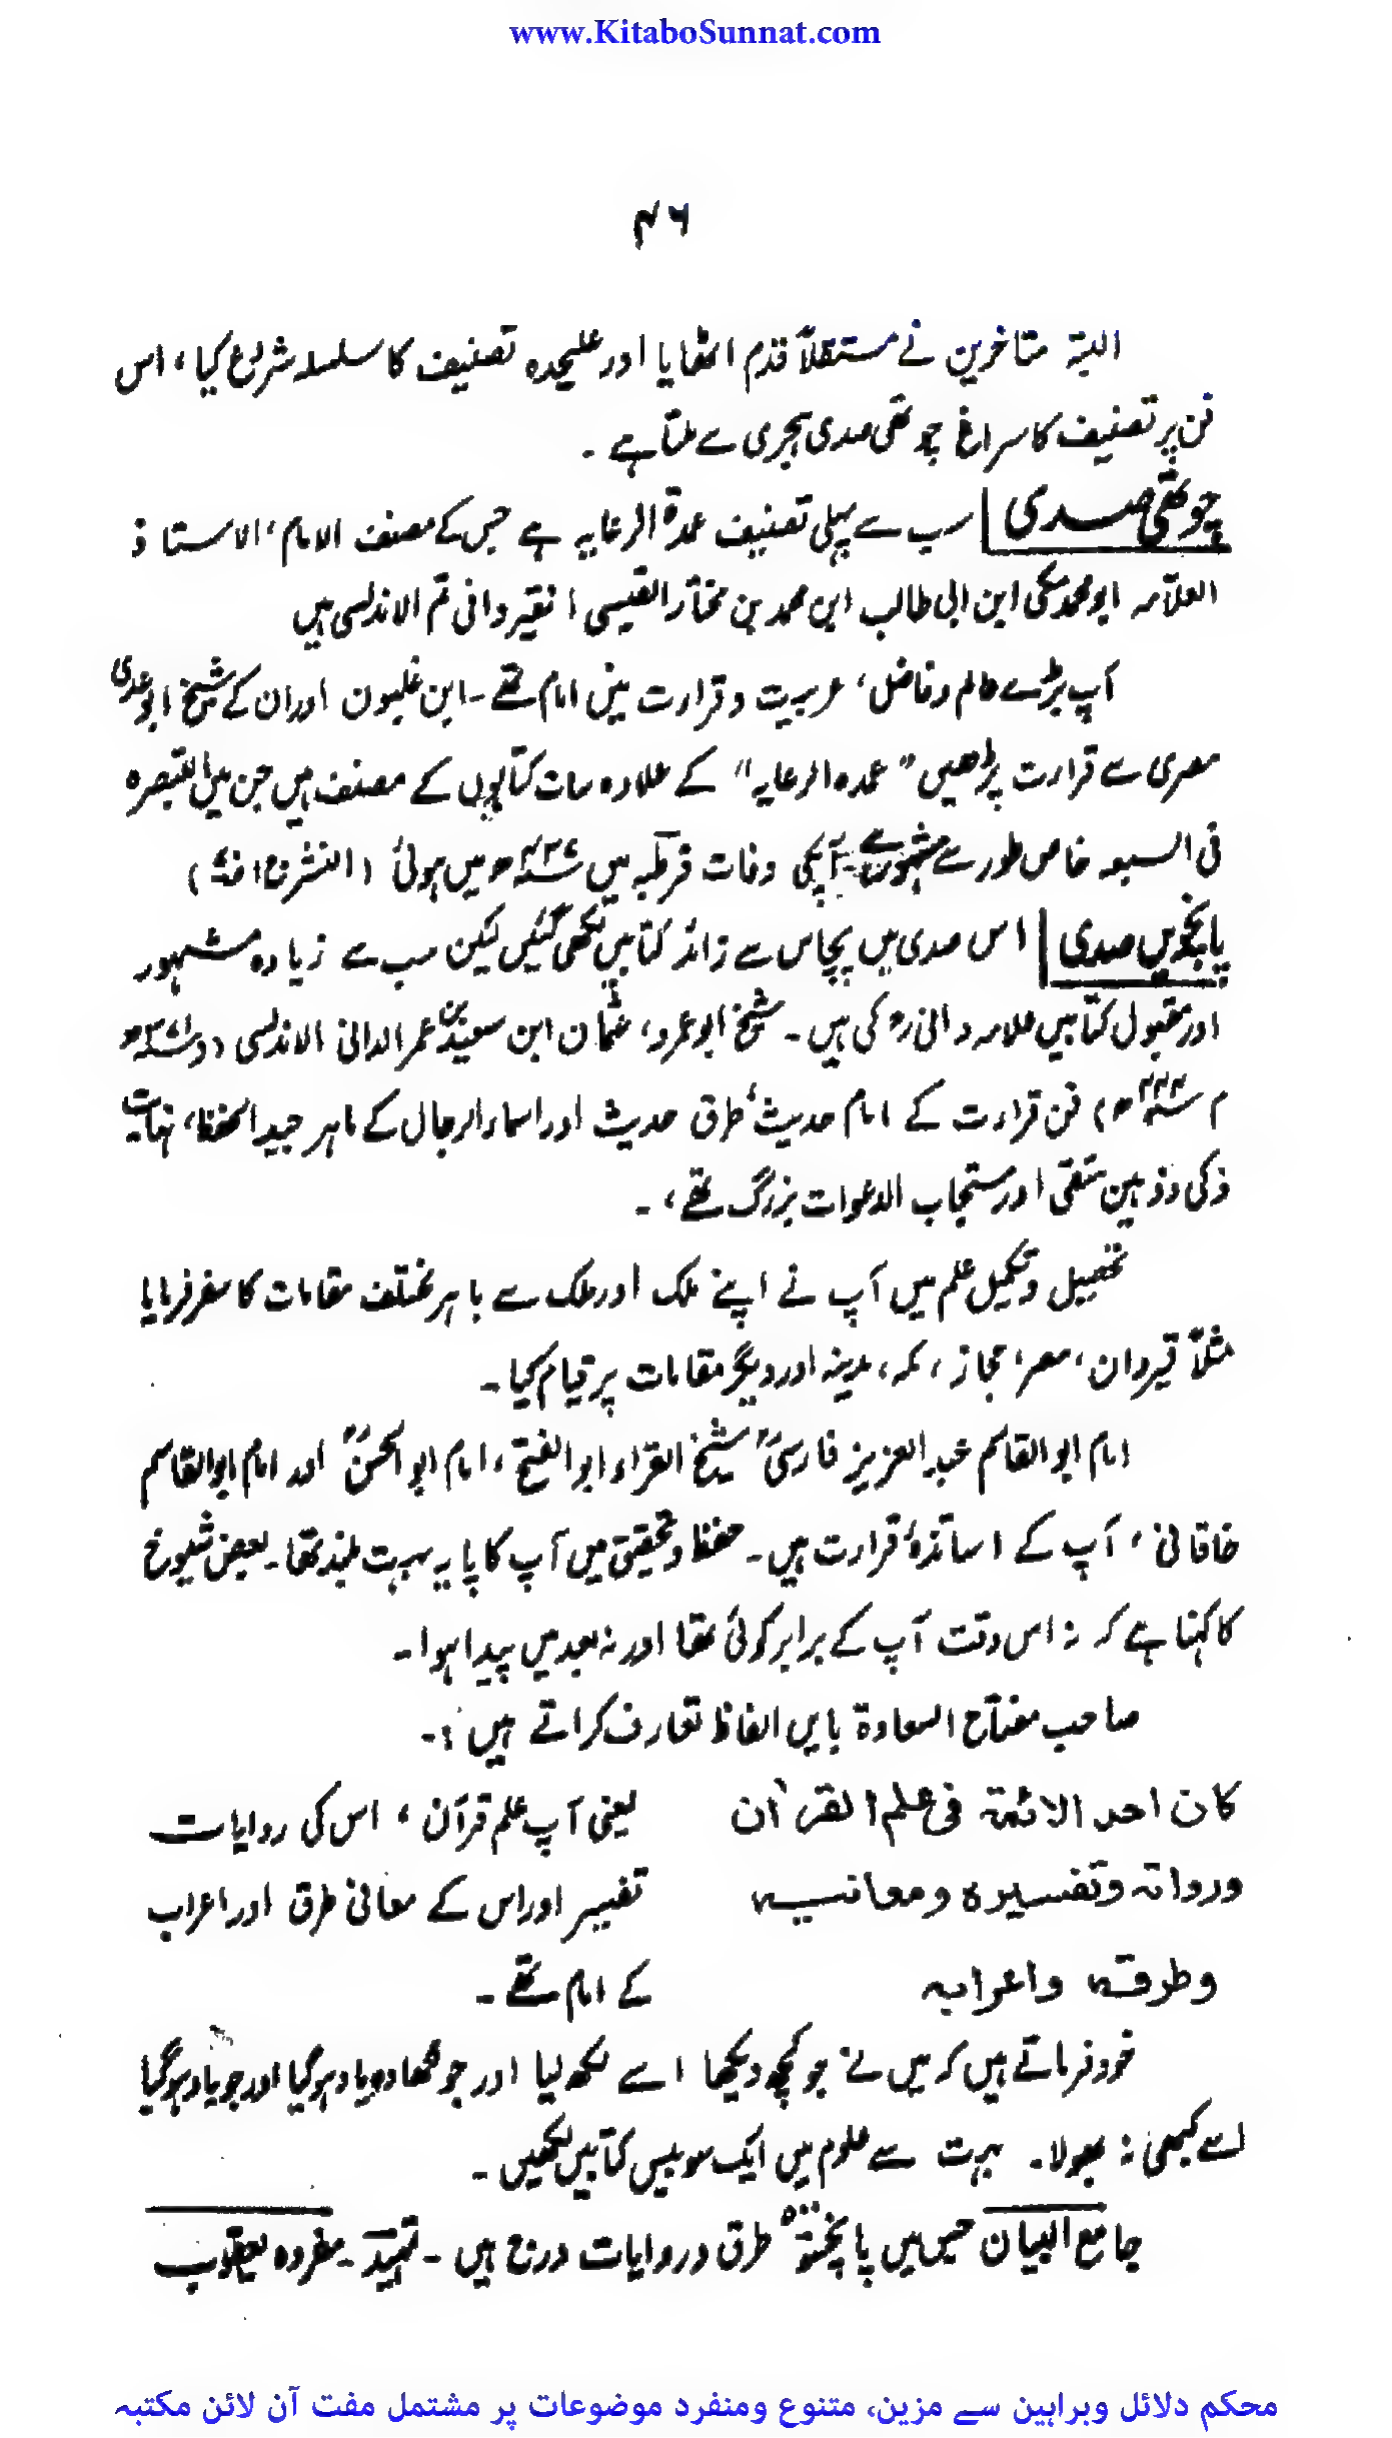 www.KitaboSunnat.com
۴۶
البتہ متاخرین نے مستقلاً قدم اٹھایا اور علیحدہ تصنیف کا سلسلہ شروع کیا، اس
فن پر تصنیف کا سراغ چوتھی صدی ہجری سے ملتا ہے ۔
چوتھی صدی سب سے پہلی تصنیف عمدۃ الرعایہ ہے جس کے مصنف الامام، الاستاذ
العلاّمہ ابو محمد مکی ابن ابی طالب ابن محمد بن مختار القیسی القیروانی ثم الاندلسی ہیں
آپ بڑے عالم و فاضل، عربیت و قراءت میں امام تھے ۔ ابن غلبون اور ان کے شیخ ابو عدی
مصری سے قراءت پڑھیں "عمدہ الرعایہ" کے علاوہ سات کتابوں کے مصنف ہیں جن میں التبصرہ
فی السبعہ خاص طور سے مشہور ہے ۔ آپکی وفات قرطبہ میں ۴۳۷ھ میں ہوئی (النشر ج۱
پانچویں صدی اس صدی میں پچاس سے زائد کتابیں لکھی گئیں لیکن سب سے زیادہ مشہور
اور مقبول کتابیں علامہ دانی رح کی ہیں ۔ شیخ ابو عمرو، عثمان ابن سعید بن عمر الدانی الاندلسی (و ۳۷۱ھ
م ۴۴۴ھ) فن قراءت کے امام حدیث، طرق حدیث اور اسماء الرجال کے ماہر جید الحفظ، نہایت
ذکی و ذہین متقی اور مستجاب الدعوات بزرگ تھے، ۔
تحصیل و تکمیل علم میں آپ نے اپنے ملک اور ملک سے باہر مختلف مقامات کا سفر فرمایا
مثلاً قیروان، مصر، حجاز، مکہ، مدینہ اور دیگر مقامات پر قیام کیا ۔
امام ابو القاسم عبد العزیز فارسیؒ شیخ القراء ابو الفتح، امام ابو الحسنؒ اور امام ابو القاسم
خاقانی، آپ کے اساتذۂ قراءت ہیں ۔ حفظ و تحقیق میں آپ کا پایہ بہت بلند تھا ۔ بعض شیوخ
کا کہنا ہے کہ نہ اس وقت آپ کے برابر کوئی تھا اور نہ بعد میں پیدا ہوا ۔
صاحب مفتاح السعادۃ بایں الفاظ تعارف کراتے ہیں :۔
کان احد الائمۃ فی علم القرآن یعنی آپ علم قرآن، اس کی روایات
ورواتہ وتفسیرہ ومعانیہ تفسیر اور اس کے معانی طرق اور اعراب
وطرقہ واعرابہ کے امام تھے ۔
خود فرماتے ہیں کہ میں نے جو کچھ دیکھا اسے لکھ لیا اور جو لکھا وہ یاد ہو گیا اور جو یاد ہو گیا
اسے کبھی نہ بھولا ۔ بہت سے علوم میں ایک سو بیس کتابیں لکھیں ۔
جامع البیان جس میں پانچسو طرق و روایات درج ہیں ۔ تمہید ۔ مفردہ یعقوب
محکم دلائل وبراہین سے مزین، متنوع ومنفرد موضوعات پر مشتمل مفت آن لائن مکتبہ